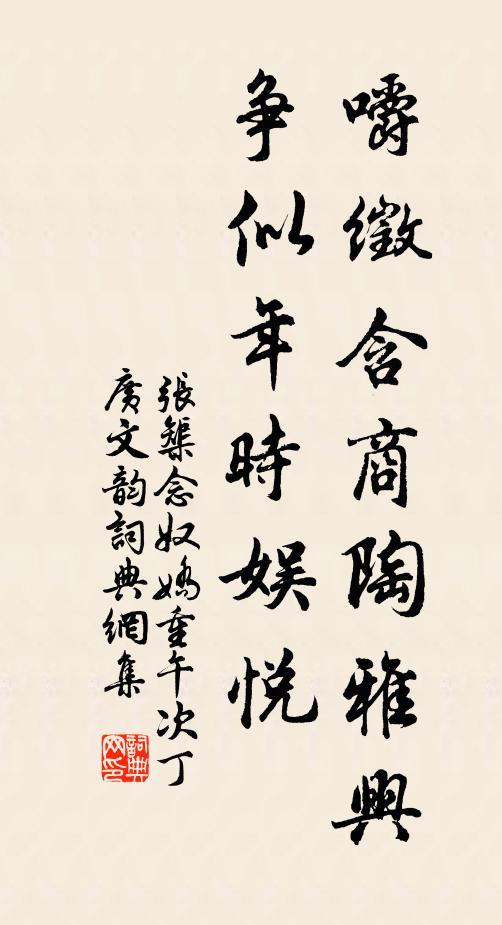 嚼徵含商陶雅興
爭似年時娛悅
張榘念奴嬌重午次丁
廣文韵詞典網集
詞典網印